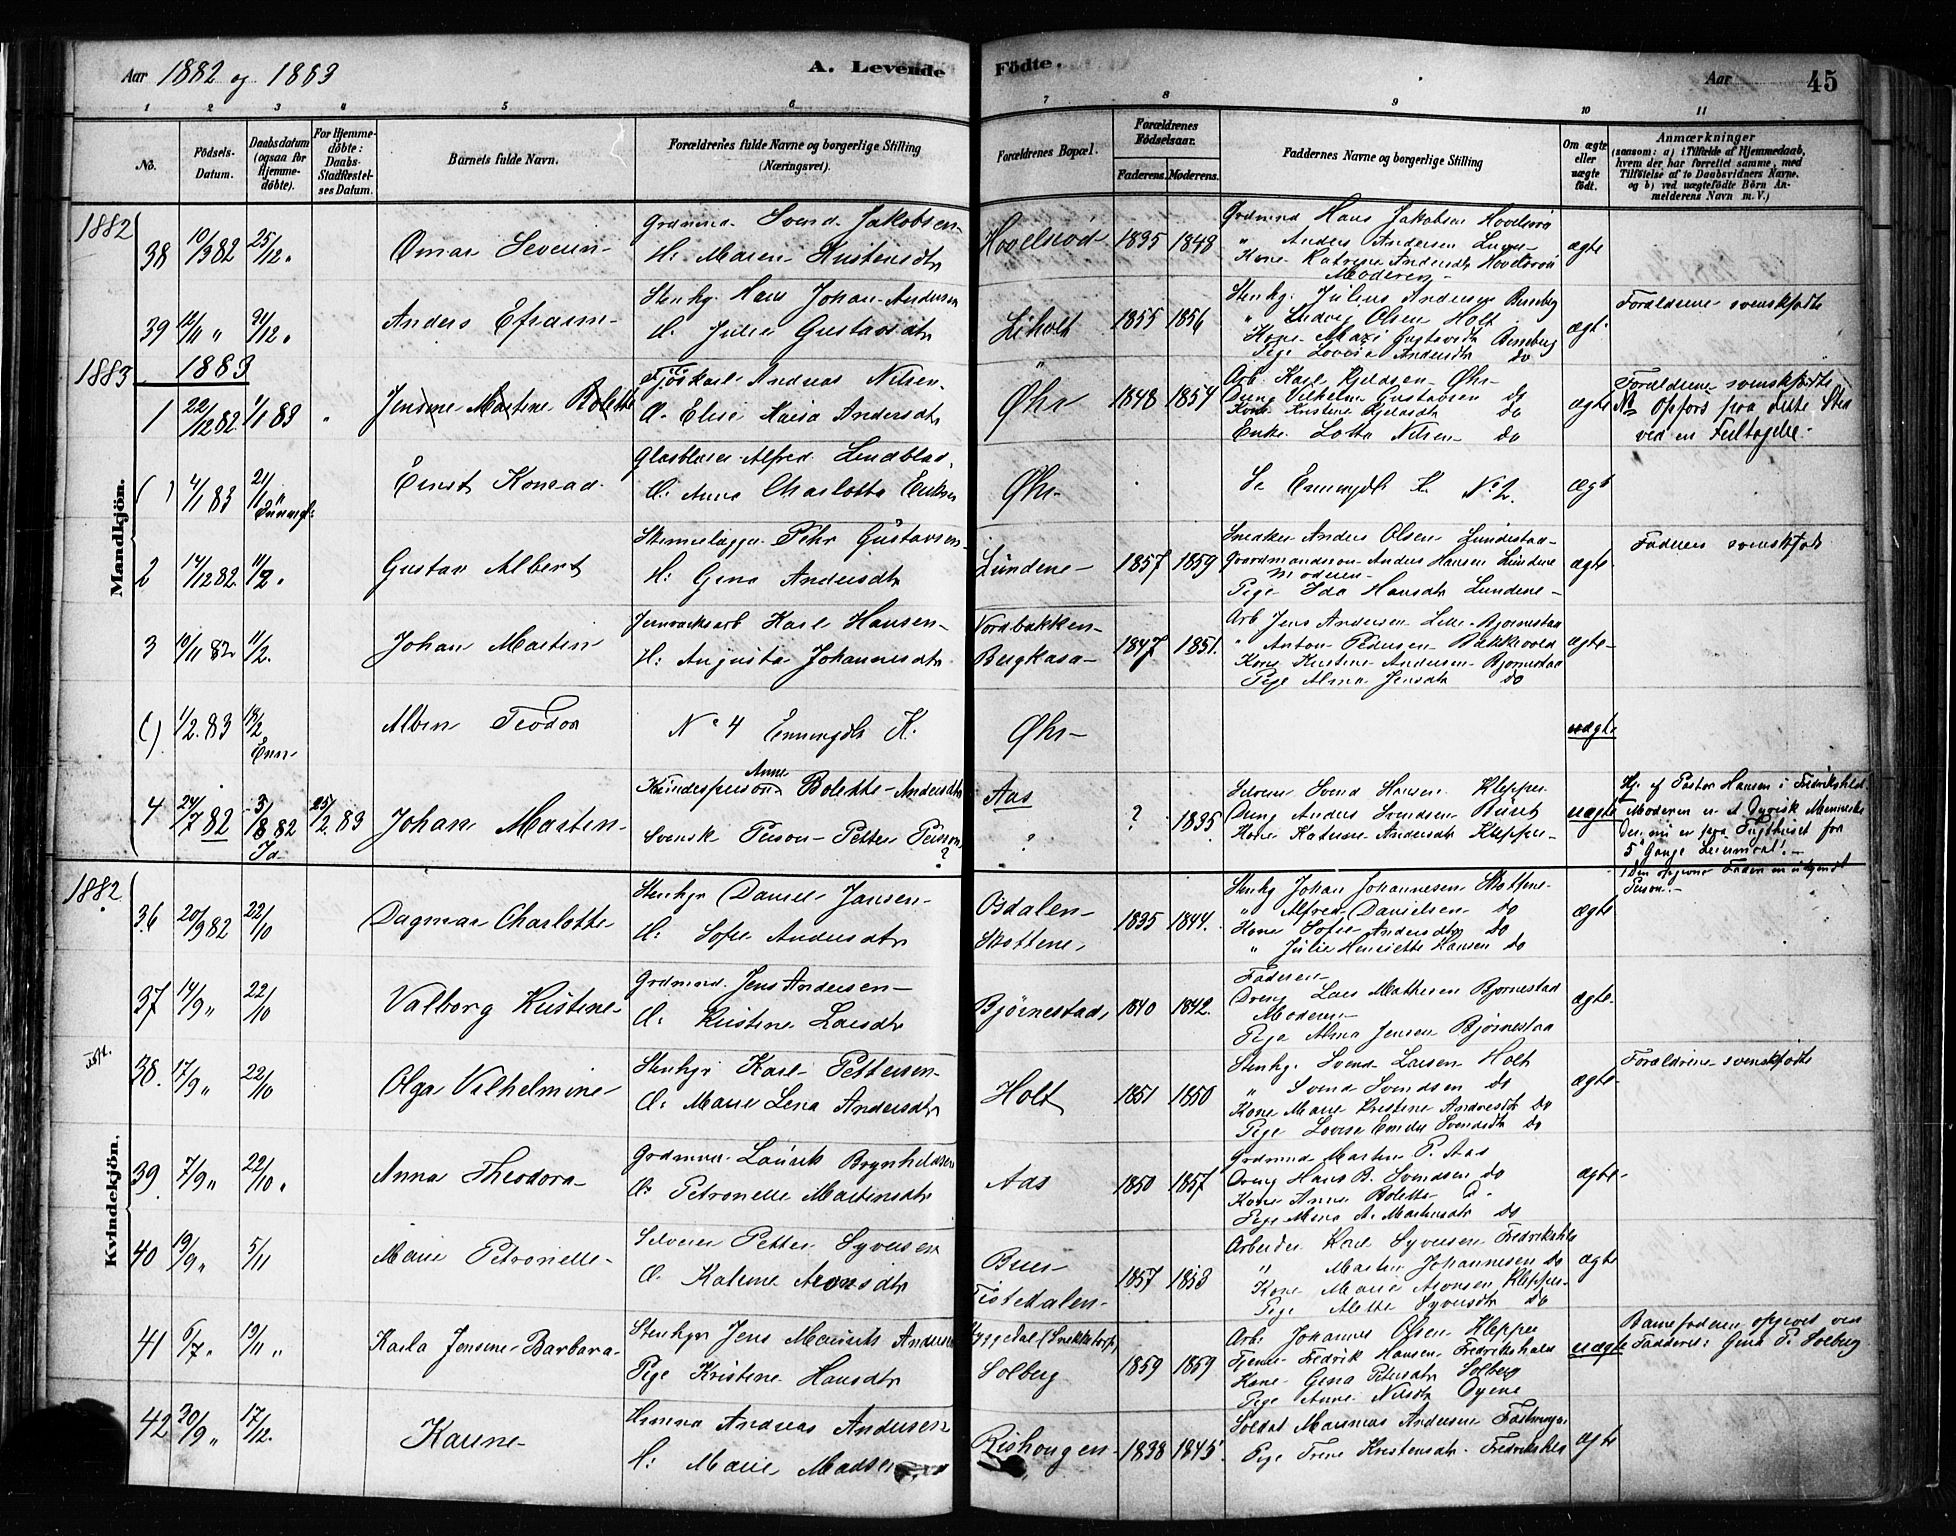 Aar 1882 og 1883
A. Levende Födte.
Aar 45
1 2 3 4 5 6 7 8 9 10 11
No.
Födsels-Datum.
Daabsdatum (ogsaa for Hjemme-döbte).
For Hjemme-döbte: Daabs-Stadfæstel-ses Datum.
Barnets fulde Navn.
Forældrenes fulde Navne og borgerlige Stilling (Næringsvei).
Forældrenes Bopæl.
Forældrenes Födselsaar.
Faderens. Moderens.
Faddernes Navne og borgerlige Stilling
Om ægte eller uægte födt.
Anmærkninger
(saasom: a) i Tilfælde af Hjemmedaab, hvem der har forrettet samme, med Tilföielse af to Daabsvidners Navne, og b) ved uægtefödte Börn An-melderens Navn m. V.)
Mandkjön.
1882
38 10/9 82 25/12 "
Omar Severin
Grdmnd. Svend Jakobsen
H: Maren Kristensdtr
Hovelsrød 1835 1848
Grdmnd Hans Jakobsen Hovelsrød
" Anders Andersen
Kone Katrine Andersdtr Hovelsrød
Moderen
ægte
39 12/11 " 31/12 "
Anders Efraim
Stenhg. Hans Johan Andersen
H. Julie Gustavsdtr
Liholt 1855 1856
Stenhg. Julius Andersen Berreberg
" Ludvig Olsen Holt
Kone Maxi Gustavsdtr Berreberg
Pige Lovise Andersdtr do
ægt.
Forældrene svenskfødte
1883 1883
1 22/12 82 1/1 83 "
Jensine Martine Bolette
Fjøskarl Andreas Nilsen
O. Elise Maria Andersdtr
Øhr 1848 1854
Arb. Karl Kjeldsen Øhr
Dreng Vilhelm Gustavsen do
Kone Kristine Kjeldsdtr do
Enke Lotta Nilsen do
ægte
Forældrene svenskfødte
NB Opførs paa dette Sted
ved en Feiltagelse.
( ) 4/1 83 21/1
Ernst Konrad
Glasblaser Alfred Lindblad
O: Anna Charlotta Eriksen
Øhr
Se Enningd. K. No 2.
ægt
2 14/12 82 11/2 "
Gustav Albert
Skinnelægger Pehr Gustavsen
H: Gina Andersdtr
Lundene 1857 1859
Snedker Anders Olsen Lundestad
Gaardmandssøn Anders Hansen Lundene
Moderen
Pige Ida Hansdtr Lundene
ægte
Faderen svenskfødt
3 10/11 82 11/2.
Johan Martin
Jernværksarb Karl Hansen
H: Augusta Johannesdtr
Nordbakken
Bergkasa 1847 1851.
Arb Jens Andersen Lille Bjørnestad
" Anton Pedersen Bakkevold
Kone Kristine Andersen Bjørnestad
Pige Alma Jensdtr do
ægte
( ) 1/2.83 18/2 Enn
Albin Teodor
No 4 Enningdl K.
Øhr
uægte
4 24/7 82 3/8 82 25/2.83
Johan Martin
Kvindesperson Anne Bolette Andersdtr
Svensk Person Petter Person ?
Aas
? ? 1835
Selveier Svend Hansen Klepper
Dreng Anders Svendsen Buset
Kone Katrine Andersdtr Klepper
uægte
Hj. af Pastor Hansen i Fredrikshald
Moderen er et Dyrisk Menneske
der nu er paa Tugthuset for
5te Gange Leiermaal.
Den opgivne Fader en ukjendt
Person.
Kvindekjön.
1882
36 20/9 82 22/10
Dagmar Charlotte
Stenhgr Daniel Jansen
H: Sofie Andersdtr
Osdalen
Skottene 1835 1844.
Stenhg Johan Johannesen Skottene
" Alfred Danielsen do
Kone Sofie Andersdtr do
" Julie Henriette Hansen do
ægte
37 14/9 " 22/10
Valborg Kristine
Grdmnd. Jens Andersen
O: Kristine Larsdtr
Bjørnestad 1840 1842.
Faderen
Dreng Lars Mathisen Bjørnestad
Moderen
Pige Alma Jensen Bjørnestad
ægte
38. 17/9 " 22/10
Olga Vilhelmine
Stenhgr Karl Pettersen
O: Marie Lena Andersdtr
Holt 1851 1850
Stenhg. Svend Larsen Holt
" Svend Svendsen do
Kone Marie Kristine Andersdtr do
Pige Lovise Emilie Svendsdtr do
ægte
Forældrene svenskfødte
39 7/9 " 22/10 "
Anna Theodora
Grdmnd Laurits Brynhildsen
O: Petronelle Martinsdtr
Aas 1850 1857
Grdmnd Martin P. Aas
Dreng Hans B. Svendsen do
Kone Anne Bolette do
Pige Mina A. Martinsdtr do
ægte
40 19/9 " 5/11
Marie Petronelle
Selveier Petter Syversen
O. Katrine Aronsdtr
Buer
Tistedalen 1857 1853
Arbeider Karl Syversen Fredrikshald
" Martin Johannesen do
Kone Marie Aronsen Klepper
Pige Alette Syversdtr do
ægte
41 6/7 " 19/11 "
Karla Jensine Barbara
Stenhgr Jens Mauritz Andersen
Pige Kristine Hansdtr
Solberg 1859 1859
Arb. Johannes Olsen Klepper
Tjener Fredrik Hansen Fredrikshald
Kone Gina Petersdtr Solberg
Pige Anne Nilsdtr Oyene
uægte
Barnefaderen opgivet ved
Fadderen: Gina P. Solberg
42 30/9 " 17/12.
Karine
Hmmnd Andreas Andersen
H: Marie Madsen
Rishougen 1838 1845.
Soldat Andersen Fæstningen
Pige Trine Kristensdtr Fredrikshald
ægte